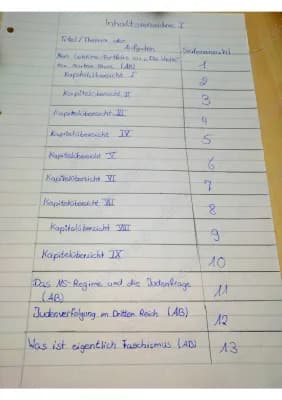 Inhaltsverzeichnis I
Titel/Thema der Aufgaben Seitenanzahl
Das Lektüre-Portfolio zu „Die Welle"
von Morton Rhue (AB) 1
Kapitelübersicht I 2
Kapitelübersicht II 3
Kapitelübersicht III 4
Kapitelübersicht IV 5
Kapitelübersicht V 6
Kapitelübersicht VI 7
Kapitelübersicht VII 8
Kapitelübersicht VIII 9
Kapitelübersicht IX 10
Das NS-Regime und die Judenfrage
(AB) 11
Judenverfolgung im Dritten Reich (AB) 12
Was ist eigentlich Faschismus (AB) 13